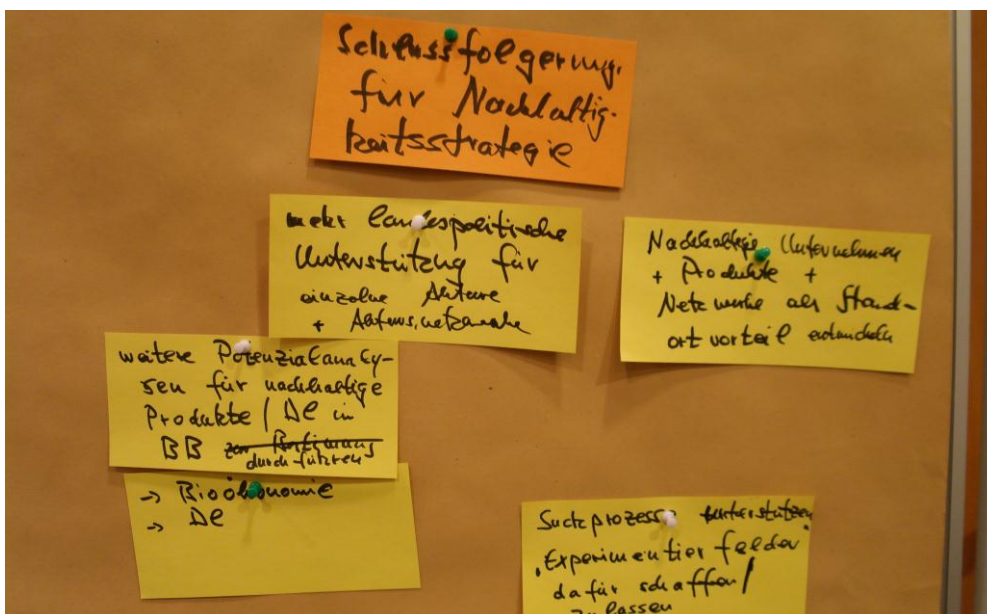 Schlussfolgerung.
für Nachhaltig-
keitsstrategie
mehr landespolitische
Unterstützung für
einzelne Akteure
+ Akteursnetzwerke
Nachhaltige Unternehmen
+ Produkte +
Netzwerke als Stand-
ortvorteil entwickeln
weitere Potenzialanaly-
sen für nachhaltige
Produkte / DL in
BB zur Bestimmung
durchführen
→ Bioökonomie
→ DL
Suchprozesse unterstützen,
"Experimentierfelder
dafür schaffen /
zulassen